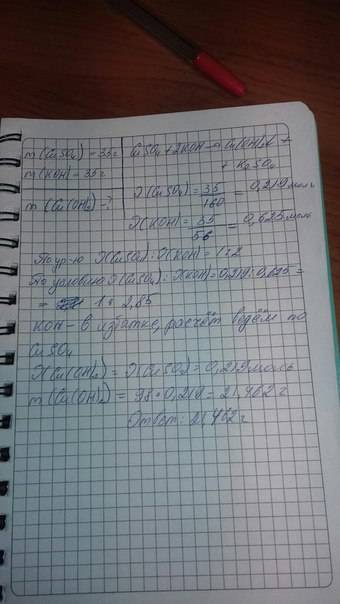 m(CuSO₄) = 35г
CuSO₄ + 2KOH → Cu(OH)₂↓ +
+ K₂SO₄
m(KOH) = 35г
m(Cu(OH)₂) - ?
ν(CuSO₄) = 35/160 = 0,219 моль
ν(KOH) = 35/56 = 0,625 моль
По ур-ю ν(CuSO₄) : ν(KOH) = 1 : 2
По условию ν(CuSO₄) : ν(KOH) = 0,219 : 0,625 =
= 1 : 2,85
KOH - в избытке, расчёт ведём по
CuSO₄
ν(Cu(OH)₂) = ν(CuSO₄) = 0,219 моль
m(Cu(OH)₂) = 98 • 0,219 = 21,462 г
Ответ: 21,462 г